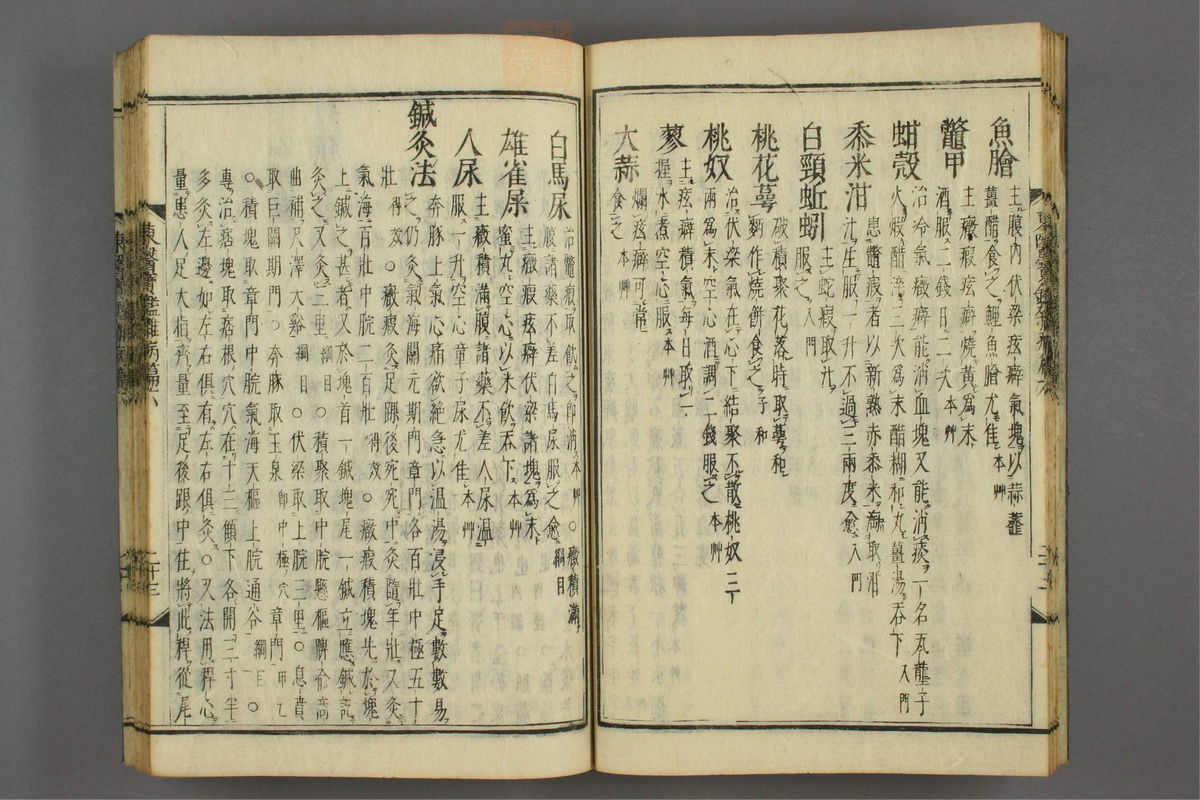 魚膾 主腹內伏梁痃癖氣塊以蒜虀
薑醋食之鯉魚膾尤佳 本艸
鼈甲 主癥瘕痃癖燒黃爲末
酒服二錢日二 本艸
蚶殼 治冷氣癥癖能消血塊又能消痰一名瓦壟子
火煅醋淬三次爲末醋糊和丸薑湯吞下 入門
黍米泔 患鼈瘕者以新熟赤黍米淘取泔
汁生服一升不過三兩度愈 入門
白頸蚯蚓 主蛇瘕取汁
服之 入門
桃花萼 破積聚花落時取萼和
麪作燒餠食之 子和
桃奴 治伏梁氣在心下結聚不散桃奴三
兩爲末空心酒調二錢服之 本艸
蓼 主痃癖積氣每日取一
握水煮空心服 本艸
大蒜 爛痃癖可常
食之 本艸
白馬尿 治鼈瘕取飮之卽消 本艸 ○癥積滿
腹諸藥不差白馬尿服之愈 綱目
雄雀屎 主癥瘕痃癖伏梁諸塊爲末
蜜丸空心以米飮吞下 本艸
人尿 主癥積滿腹諸藥不差人尿溫
服一升空心童子尿尤佳 本艸
鍼灸法 奔豚上氣心痛欲絶急以溫湯浸手足數數易
之仍灸氣海關元期門章門各百壯中極五十
壯 得效 ○癥瘕灸足踝後宛宛中灸隨年壯又灸
氣海百壯中脘二百壯 得效 ○癥瘕積塊先於塊
上鍼之甚者又於塊首一鍼塊尾一鍼立應鍼訖
灸之又灸三里 綱目 ○積聚取中脘懸樞脾兪商
曲補尺澤大谿 綱目 ○伏梁取上脘三里○息賁
取巨闕期門○奔豚取玉泉 卽中極穴 章門 甲乙
○積塊取章門中脘氣海天樞上脘通谷 綱目 ○
專治痞塊取痞根穴穴在十三顀下各開三寸半
多灸左邊如左右俱有左右俱灸○又法用稈心
量患人足大指齊量至足後跟中住將此稈從尾